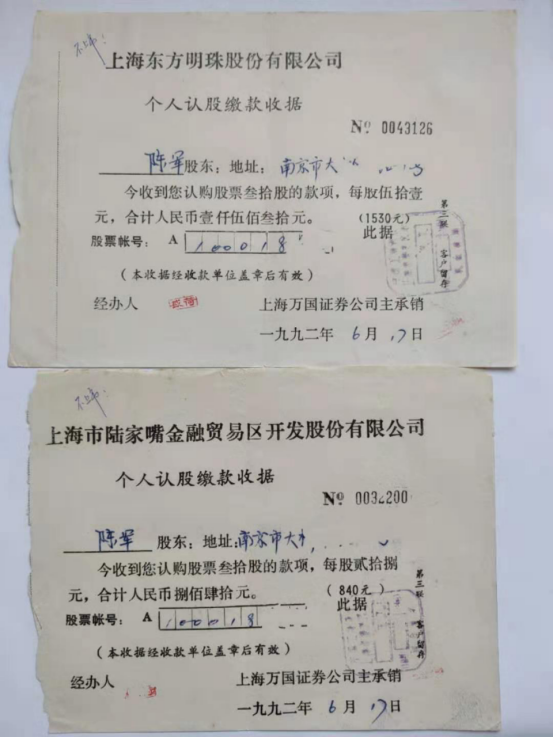 上海东方明珠股份有限公司
个人认股缴款收据
№ 0043126
陈军股东：地址：南京市大
今收到您认购股票叁拾股的款项，每股伍拾壹
元，合计人民币壹仟伍佰叁拾元。
(1530元)
此据
股票帐号： A 100018
（本收据经收款单位盖章后有效）
第三联 客户留存
经办人 上海万国证券公司主承销
一九九二年 6月 17日
上海市陆家嘴金融贸易区开发股份有限公司
个人认股缴款收据
№ 0032200
陈军 股东：地址：南京市大
今收到您认购股票叁拾股的款项，每股贰拾捌
元，合计人民币捌佰肆拾元。
(840元)
此据
股票帐号： A 100018
（本收据经收款单位盖章后有效）
第三联 客户留存
经办人 上海万国证券公司主承销
一九九二年 6月 17日